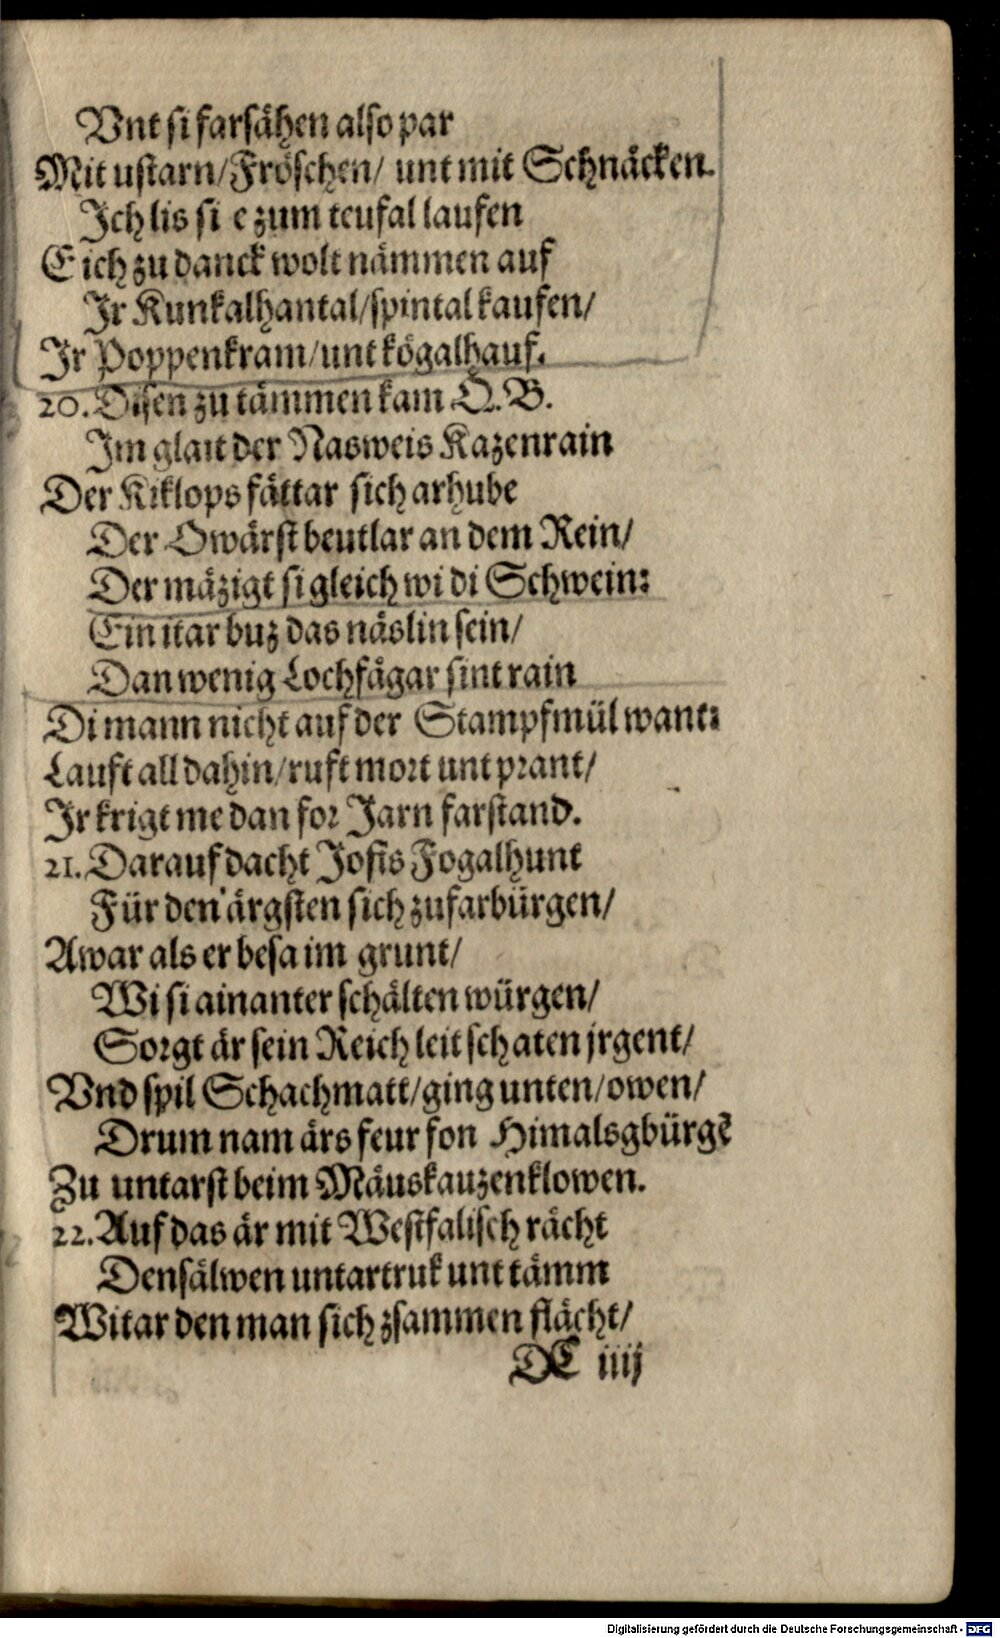 Vnt si farsähen also par
Mit ustarn/Fröschen/ unt mit Schnäcken.
Ich lis si e zum teufal laufen
E ich zu danck wolt nämmen auf
Ir Kunkalhantal/spintal kaufen/
Ir Poppenkram/unt kögalhauf.
20. Disen zu tämmen kam Q. B.
Im glait der Nasweis Kazenrain
Der Kiklops fättar sich arhube
Der Owärst beutlar an dem Rein/
Der mäzigt si gleich wi di Schwein:
Ein itar buz das näslin sein/
Dan wenig Lochfägar sint rain
Di mann nicht auf der Stampfmül want:
Lauft all dahin/ruft mort unt prant/
Ir krigt me dan for Jarn farstand.
21. Darauf dacht Josis Fogalhunt
Für den ärgsten sich zufarbürgen/
Awar als er besa im grunt/
Wi si ainanter schälten würgen/
Sorgt är sein Reich leit schaten jrgent/
Vnd spil Schachmatt/ging unten/owen/
Drum nam ärs feur fon Himalsgbürgẽ
Zu untarst beim Mäuskauzenklowen.
22. Auf das är mit Westfalisch rächt
Den sälwen untartruk unt tämm
Witar den man sich zsammen flächt/
DC iiij
Digitalisierung gefördert durch die Deutsche Forschungsgemeinschaft - DFG